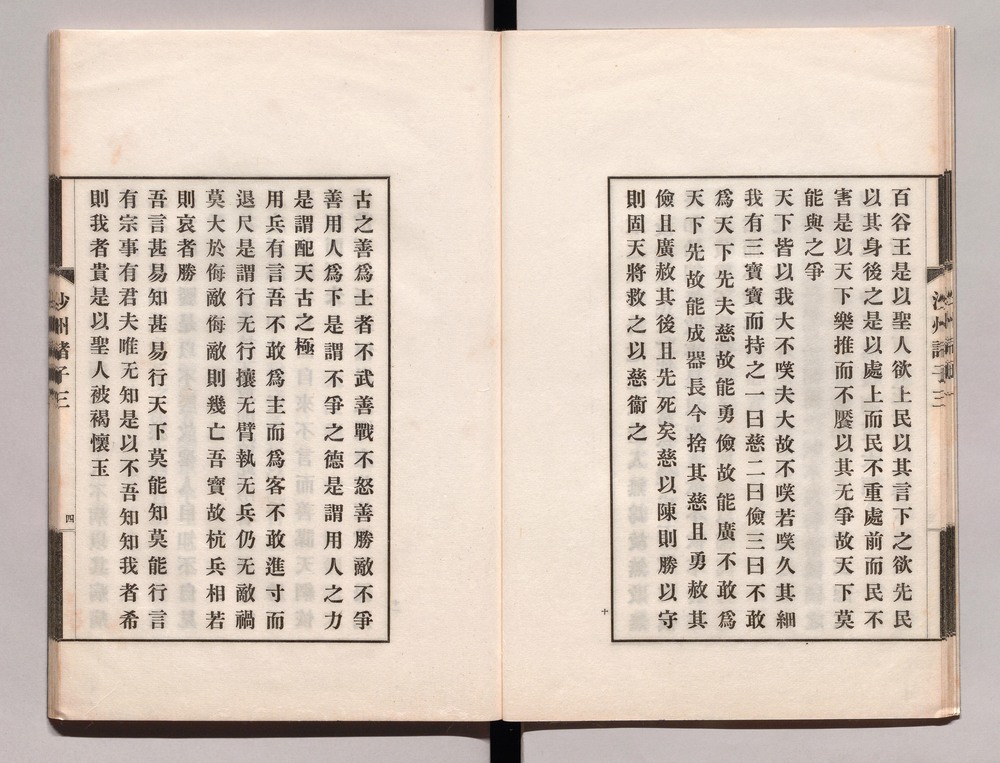 百谷王是以聖人欲上民以其言下之欲先民
以其身後之是以處上而民不重處前而民不
害是以天下樂推而不饜以其无爭故天下莫
能與之爭
天下皆以我大不㗛夫大故不㗛若㗛久其細
我有三寶寶而持之一曰慈二曰儉三曰不敢
爲天下先夫慈故能勇儉故能廣不敢爲
天下先故能成器長今捨其慈且勇赦其
儉且廣赦其後且先死矣慈以陳則勝以守
則固天將救之以慈衞之
古之善爲士者不武善戰不怒善勝敵不爭
善用人爲下是謂不爭之德是謂用人之力
是謂配天古之極
用兵有言吾不敢爲主而爲客不敢進寸而
退尺是謂行无行攘无臂執无兵仍无敵禍
莫大於侮敵侮敵則幾亡吾寶故杭兵相若
則哀者勝
吾言甚易知甚易行天下莫能知莫能行言
有宗事有君夫唯无知是以不吾知知我者希
則我者貴是以聖人被褐懷玉
四